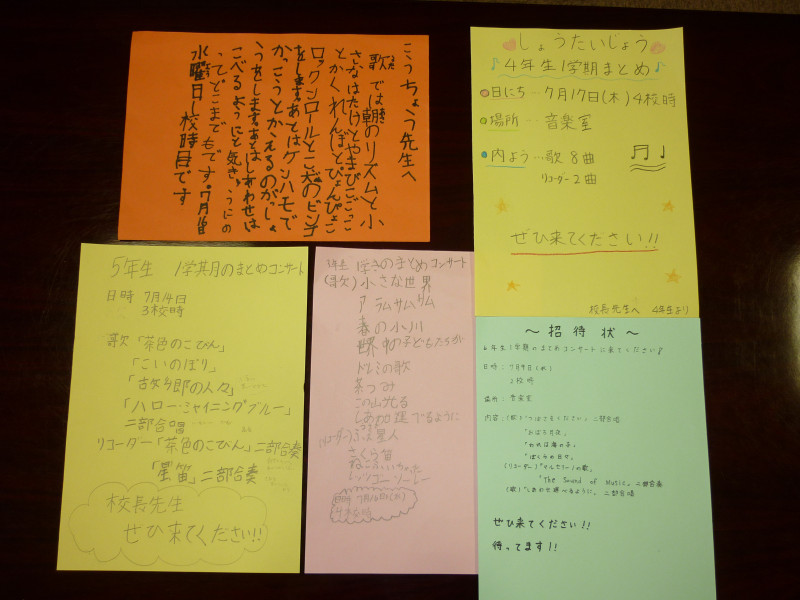 こうちょう先生へ
歌では朝のリズムと小
さなはたけとやまびこごっこ
とかくれんぼとぴょんぴょこ
ロックンロールとこ犬のビンゴ
をします。あとはケンハモで
かっこうとかえるのがっしょ
うをします。あとはしあわせは
こべるようにと気きゅうにの
ってどこまでもです。7月
水曜日1校時目です
しょうたいじょう
4年生1学期まとめ
日にち…7月17日(木)4校時
場所…音楽室
内よう…歌8曲
リコーダー2曲
ぜひ来てください!!
校長先生へ 4年生より
5年生 1学期のまとめコンサート
日時 7月14日
3校時
歌「茶色のこびん」
「こいのぼり」
「牧場の人々」
「ハロー・シャイニングブルー」
二部合唱
リコーダー「茶色のこびん」二部合奏
「星笛」二部合奏
校長先生
ぜひ来てください!!
3年生 1学きのまとめコンサート
(歌)小さな世界
アラムサムサム
春の小川
世界中の子どもたちが
ドレミの歌
茶つみ
この山光る
しあわせ運べるように
(リコーダー)
さくら笛
レッツゴーソーレー
4校時
～招待状～
6年生1学期のまとめコンサートに来てください♪
日時:7月9日(水)
2校時
場所:音楽室
内容:(歌)「つばさをください」二部合唱
「おぼろ月夜」
「われは海の子」
「ぼくらの日々」
(リコーダー)
"The Sound of Music" 二部合奏
(歌)「しあわせ運べるように」二部合唱
ぜひ来てください!!
待ってます!!